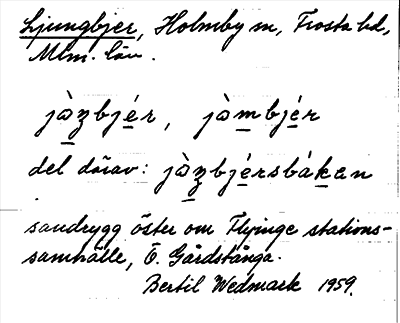 Ljungbjer, Holmby sn, Frosta hd,
Mlm. län.
jò̀ŋbjér, jòmbjér
del därav: jòŋbjérsbákan
sandrygg öster om Flyinge stations-
samhälle, Ö. Gårdstånga.
Bertil Wedmark 1959.